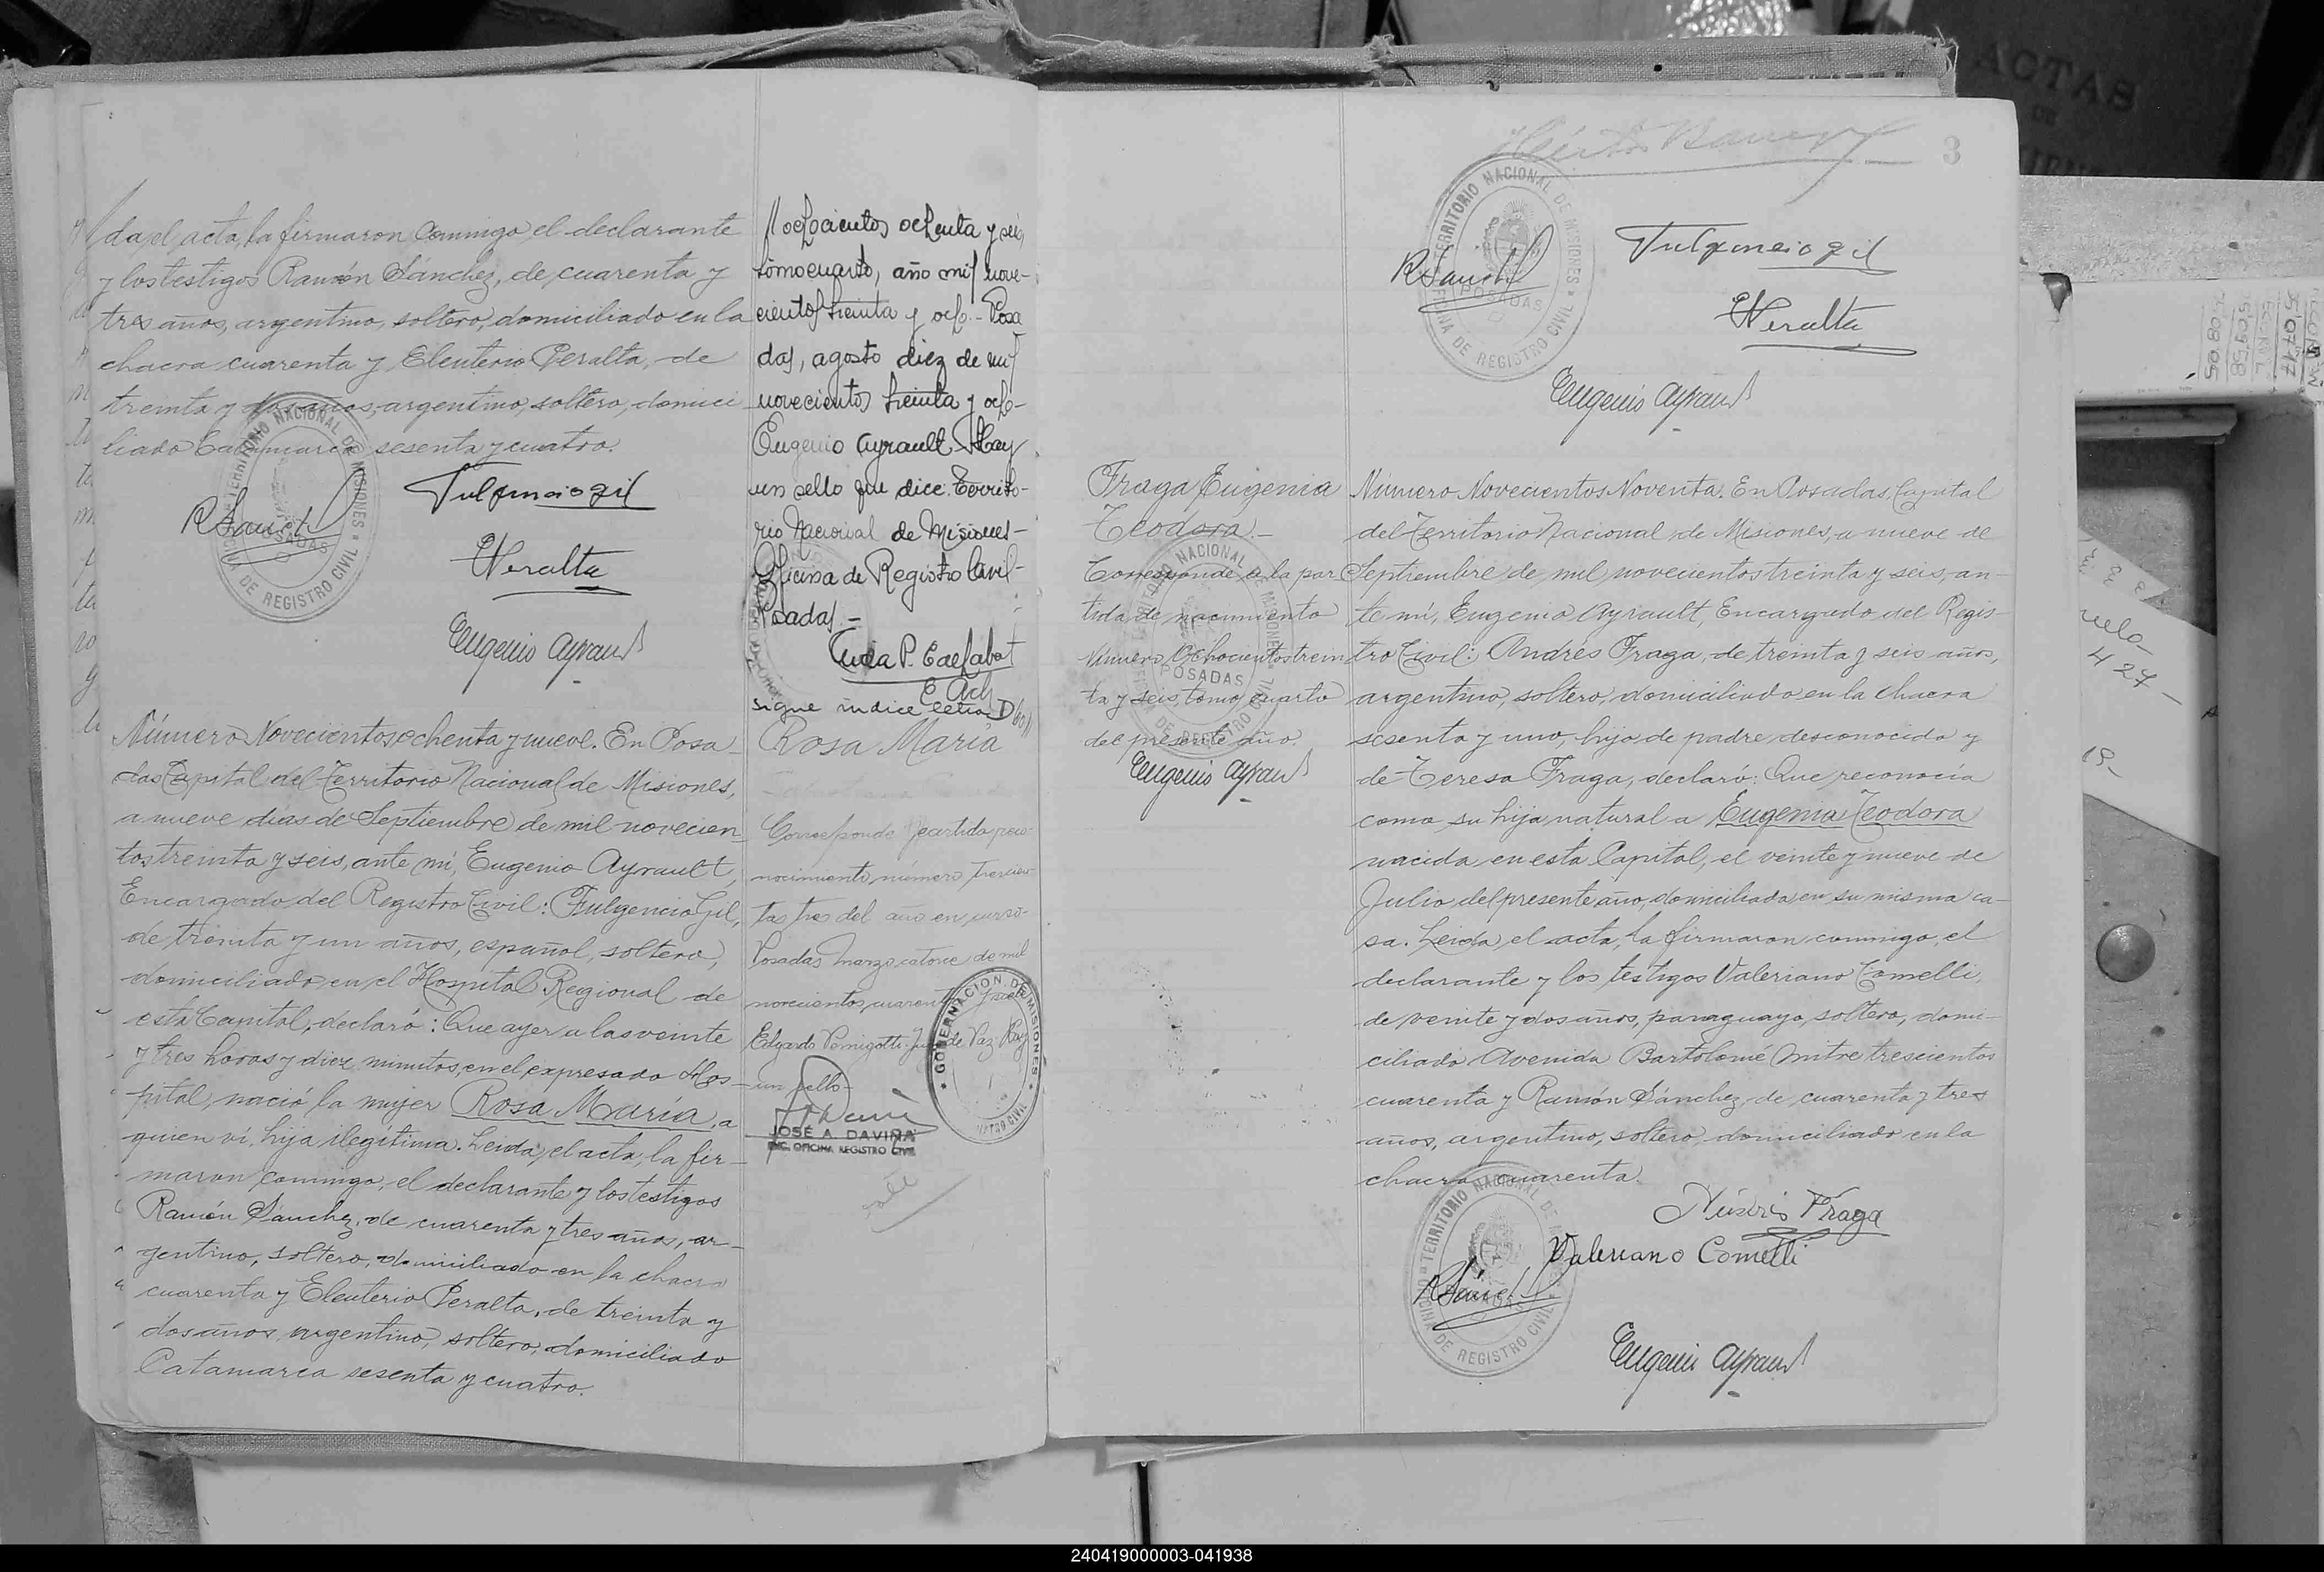 da el acta, la firmaron conmigo el declarante
y los testigos Ramón Sánchez, de cuarenta y
tres años, argentino, soltero, domiciliado en la
chacra cuarenta y Eleuterio Peralta, de
treinta y dos años, argentino, soltero, domici
liado Catamarca sesenta y cuatro.
RSanch
Fulgencio Gil
EPeralta
Eugenio Ayrault
TERRITORIO NACIONAL DE MISIONES
POSADAS
OFICINA DE REGISTRO CIVIL
Número Novecientos ochenta y nueve. En Posa-
das Capital del Territorio Nacional de Misiones,
a nueve días de Septiembre de mil novecien
tos treinta y seis, ante mí, Eugenio Ayrault,
Encargado del Registro Civil: Fulgencio Gil,
de treinta y un años, español, soltero,
domiciliado en el Hospital Regional de
esta Capital, declaró: Que ayer a las veinte
y tres horas y diez minutos, en el expresado Hos-
pital, nació la mujer Rosa María, a
quien ví, hija ilegítima. Leida el acta, la fir-
maron conmigo, el declarante y los testigos
Ramón Sánchez, de cuarenta y tres años, ar-
gentino, soltero, domiciliado en la chacra
cuarenta y Eleuterio Peralta, de treinta y
dos años argentino, soltero, domiciliado
Catamarca sesenta y cuatro.
ochocientos ochenta y seis,
tomo cuarto, año mil nove-
cientos treinta y ocho.- Posa
das, agosto diez de mil
novecientos treinta y ocho-
Eugenio Ayrault- Hay
un sello que dice: Territo-
rio Nacional de Misiones-
Oficina de Registro Civil-
Posadas.-
sigue indice letra D
Rosa María
Corresponde partida reco-
nocimiento, número trescien
tos tres del año en curso-
Posadas, marzo catorce de mil
novecientos cuarenta y
Edgardo Juez de Paz- Hay
un sello-
JOSÉ A. DAVIÑA
ENC. OFICINA REGISTRO CIVIL
GOBERNACION DE MISIONES
3
TERRITORIO NACIONAL DE MISIONES
POSADAS
OFICINA DE REGISTRO CIVIL
RSanch
Fulgencio Gil
EPeralta
Eugenio Ayrault
Fraga Eugenia
Teodora.-
Corresponde a la par
tida de nacimiento
número Ochocientos trein
ta y seis, tomo cuarto
del presente año.
Eugenio Ayrault
TERRITORIO NACIONAL DE MISIONES
POSADAS
OFICINA DE REGISTRO CIVIL
Número Novecientos Noventa. En Posadas, Capital
del Territorio Nacional de Misiones, a nueve de
Septiembre de mil novecientos treinta y seis, an-
te mí, Eugenio Ayrault, Encargado del Regis-
tro Civil: Andrés Fraga, de treinta y seis años,
argentino, soltero, domiciliado en la chacra
sesenta y uno, hijo de padre desconocido y
de Teresa Fraga, declaró: Que reconocía
como su hija natural a Eugenia Teodora
nacida en esta Capital, el veinte y nueve de
Julio del presente año, domiciliada en su misma ca-
sa. Leida el acta, la firmaron conmigo, el
declarante y los testigos Valeriano Comelli,
de veinte y dos años, paraguayo, soltero, domi-
ciliado Avenida Bartolomé Mitre trescientos
cuarenta y Ramón Sánchez, de cuarenta y tres
años, argentino, soltero, domiciliado en la
chacra cuarenta.
Andrés Fraga
Valeriano Comelli
RSanch
Eugenio Ayrault
TERRITORIO NACIONAL DE MISIONES
POSADAS
OFICINA DE REGISTRO CIVIL
ACTAS
DE
427
19-
240419000003-041938